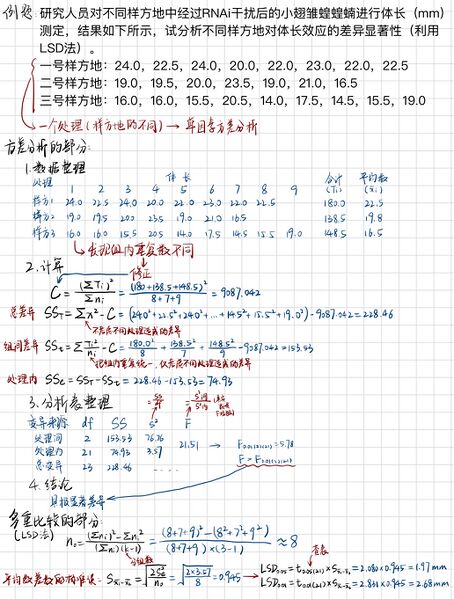 例题：研究人员对不同样方地中经过RNAi干扰后的小翅雏蝗蝗蝻进行体长（mm）
测定，结果如下所示，试分析不同样方地对体长效应的差异显著性（利用
LSD法）。
一号样方地：24.0，22.5，24.0，20.0，22.0，23.0，22.0，22.5
二号样方地：19.0，19.5，20.0，23.5，19.0，21.0，16.5
三号样方地：16.0，16.0，15.5，20.5，14.0，17.5，14.5，15.5，19.0
一个处理（样方地的不同）→ 单因素方差分析
方差分析的部分：
1. 数据整理
处理 体 长 合计 平均数
1 2 3 4 5 6 7 8 9 (Ti) (x̄i)
样方1 24.0 22.5 24.0 20.0 22.0 23.0 22.0 22.5 180.0 22.5
样方2 19.0 19.5 20.0 23.5 19.0 21.0 16.5 138.5 19.8
样方3 16.0 16.0 15.5 20.5 14.0 17.5 14.5 15.5 19.0 148.5 16.5
发现组内重复数不同
2. 计算 修正
C = (ΣTi)²/Σni = (180+138.5+148.5)²/(8+7+9) = 9087.042
总差异 SST = Σx² - C = (24.0²+22.5²+24.0²+...+14.5²+15.5²+19.0²) - 9087.042 = 228.46
不考虑不同处理造成的差异
组间差异 SSt = ΣTi²/ni - C = 180.0²/8 + 138.5²/7 + 148.5²/9 - 9087.042 = 153.53
把组内重复统一，仅考虑不同处理造成的差异
处理内 SSe = SST - SSt = 228.46 - 153.53 = 74.93
3. 分析表整理
变异来源 df SS S² F
处理间 2 153.53 76.76 21.51 → F0.01(2,21) = 5.78
处理内 21 74.93 3.57 F > F0.01(2,21)
总变异 23 228.46
4. 结论
具极显著差异
多重比较的部分：
(LSD法) n₀ = ((Σni)² - Σni²)/((Σni)(k-1)) = ((8+7+9)² - (8²+7²+9²))/((8+7+9)×(3-1)) ≈ 8
分组数
查表
平均数差数的标准误：Sx̄i-x̄j = √(2Se²/n₀) = √(2×3.57/8) = 0.945
LSD0.05 = t0.05(21) × Sx̄i-x̄j = 2.080×0.945 = 1.97mm
LSD0.01 = t0.01(21) × Sx̄i-x̄j = 2.831×0.945 = 2.68mm